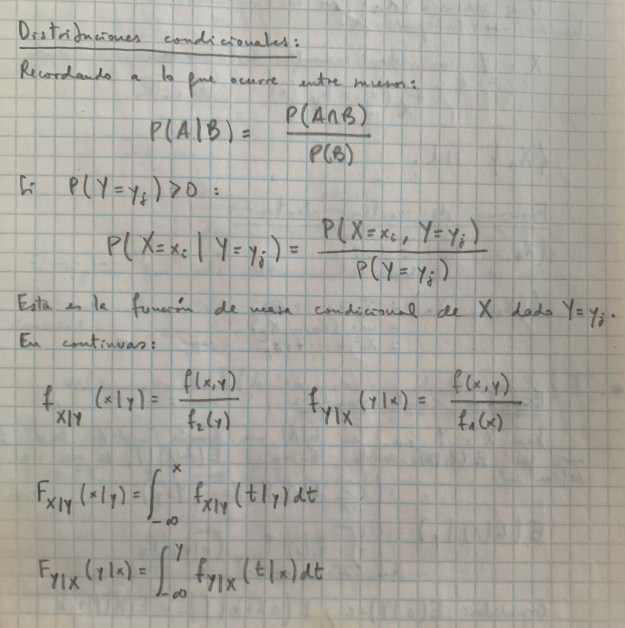 Distribuciones condicionales:
Recordando a lo que ocurre entre sucesos:
P(A|B) = P(A∩B) / P(B)
Si P(Y=yⱼ) > 0 :
P(X=xᵢ | Y=yⱼ) = P(X=xᵢ, Y=yⱼ) / P(Y=yⱼ)
Esta es la función de masa condicional de X dado Y=yⱼ.
En continuas:
f_{X|Y} (x|y) = f(x,y) / f₂(y) f_{Y|X} (y|x) = f(x,y) / f₁(x)
F_{X|Y} (x|y) = ∫_{-∞}^{x} f_{X|Y} (t|y) dt
F_{Y|X} (y|x) = ∫_{-∞}^{y} f_{Y|X} (t|x) dt